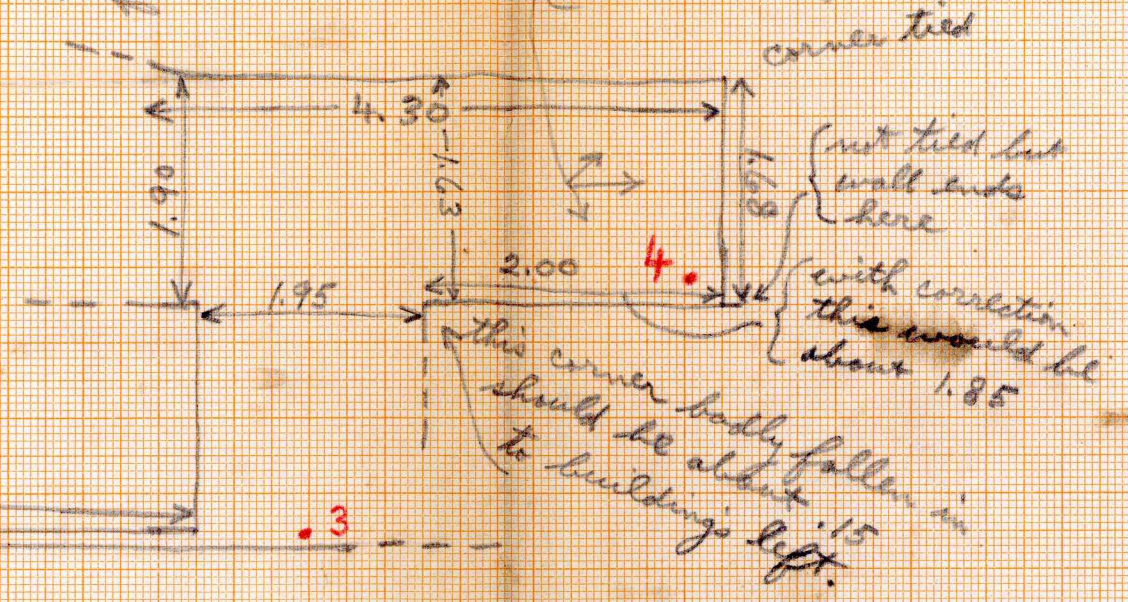 corner tied
4.30
1.90
1.63
1.68
not tied but
wall ends
here
4.
2.00
1.95
with correction
this would be
about 1.85
this corner badly fallen in
should be about .15
to building's left.
3